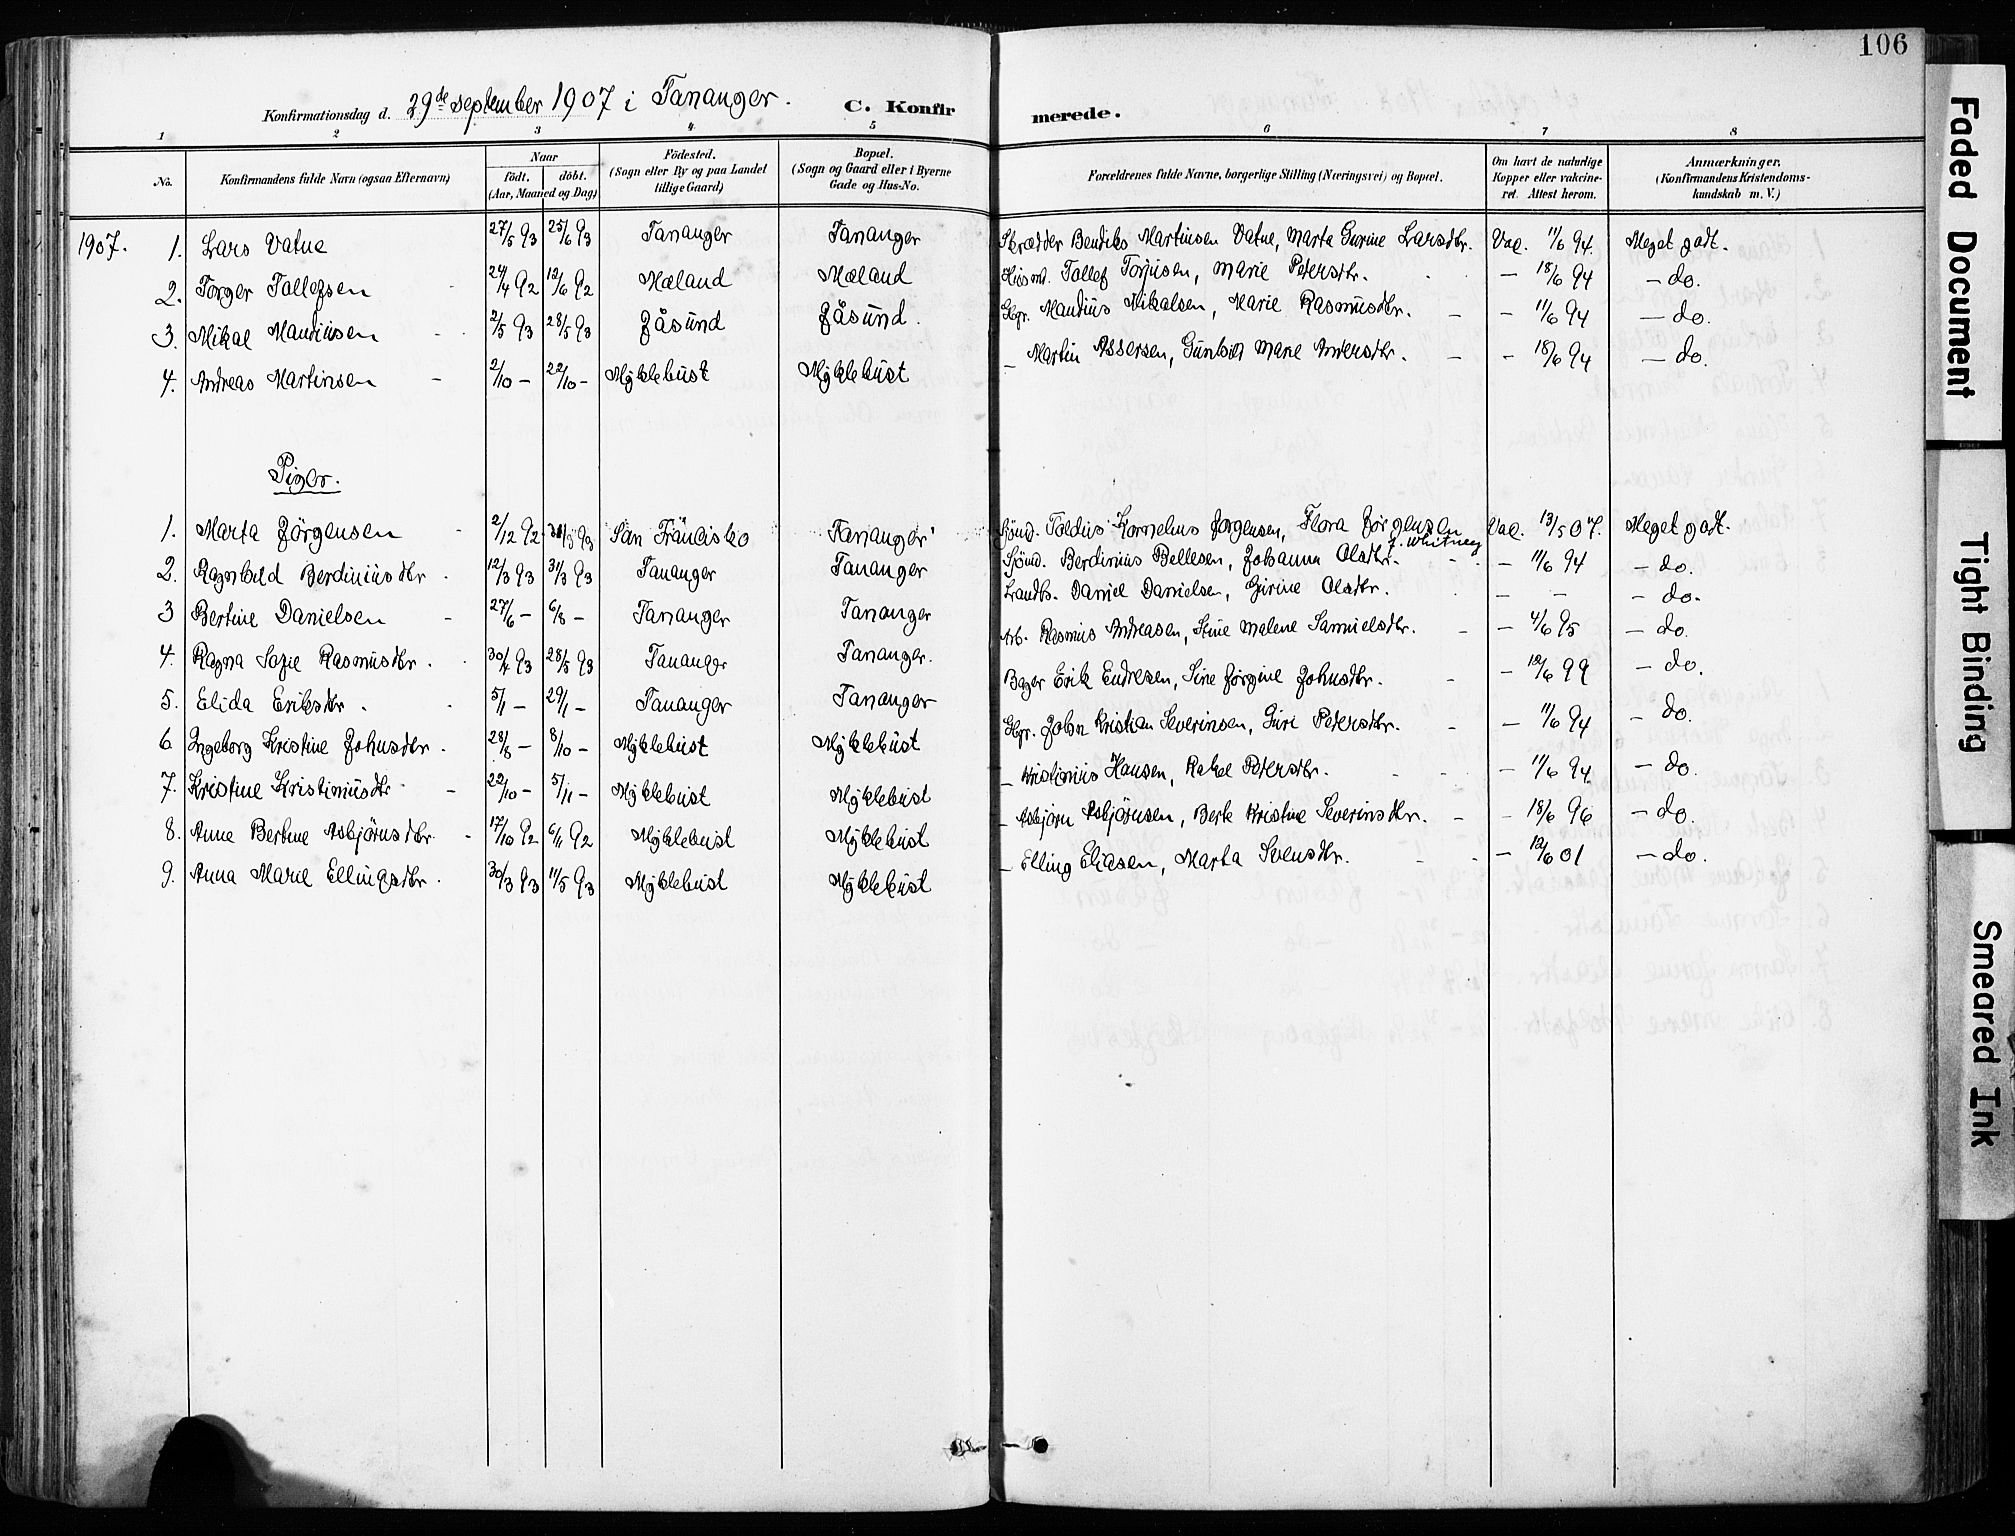 106
Konfirmationsdag d. 29de september 1907 i Tananger.
C. Konfirmerede.
1 2 3 4 5 6 7 8
No. Konfirmandens fulde Navn (ogsaa Efternavn) Naar født. døbt. (Aar, Maaned og Dag) Födested. (Sogn eller By og paa Landet tillige Gaard) Bopæl. (Sogn og Gaard eller i Byerne Gade og Hus-No. Forældrenes fulde Navne, borgerlige Stilling (Næringsvei) og Bopæl. Om havt de naturlige Kopper eller vakcineret. Attest herom. Anmærkninger. (Konfirmandens Kristendomskundskab m. V.)
1907. 1. Lars Vatne 27/5 93 25/6 93 Tananger Tananger Skrædder Bendiks Martinsen Vatne, Marta Gurine Larsdtr. Vac. 11/6 94. Meget godt.
2. Torger Tollefsen 24/4 92 12/6 92 Mæland Mæland Husmd. Tollef Torjusen, Marie Petersdtr. — 18/6 94 — do.
3. Mikal Maudiusen 2/5 93 28/5 93 Jåsund Jåsund. Gbr. Maudius Mikalsen, Marie Rasmusdtr. — 11/6 94 — do.
4. Andreas Martinsen 2/10 — 22/10 — Myklebust Myklebust — Martin Assersen, Gunhild Marie Andersdtr. — 18/6 94 — do.
Piger.
1. Marta Jørgensen 2/12 92 San Francisko Tananger Sjömd. Toldius Kornelius Jørgensen, Flora Jørgensen f. Whitney Vac. 13/5 07. Meget godt.
2. Ragnhild Berdiniusdtr. 12/3 93 31/3 93 Tananger Tananger Sjömd. Berdinius Bellesen, Johanna Olsdtr. — 11/6 94 — do.
3 Bertine Danielsen 27/6 — 6/8 — Tananger Tananger Landh. Daniel Danielsen, Gurine Olsdtr. — — — do.
4. Ragna Sofie Rasmusdtr. 30/4 93 28/5 93 Tananger Tananger. Arb. Rasmus Andreasen, Stine Malene Samuelsdtr. — 4/6 95 — do.
5. Elida Eriksdtr. 5/1 — 29/1 — Tananger Tananger Bager Erik Endresen, Sine Jørgine Johnsdtr. — 12/6 99 — do.
6. Ingeborg Kristine Johnsdtr. 28/8 — 8/10 — Myklebust Myklebust Gbr. John Kristian Severinsen, Guri Petersdtr. — 11/6 94 — do.
7. Kristine Kristiniusdtr. 22/10 — 5/11 — Myklebust Myklebust — Kristinius Hansen, Rakel Petersdtr. — 11/6 94. — do.
8. Anne Bertine Asbjørnsdtr. 17/10 92 6/11 92 Myklebust Myklebust — Asbjørn Asbjørnsen, Berte Kristine Severinsdtr. — 18/6 96 — do.
9. Anna Marie Ellingsdtr. 30/3 93 11/5 93 Myklebust Myklebust — Elling Eliasen, Marta Svensdtr. — 12/6 01 — do.
Faded Document
Tight Binding
Smeared Ink